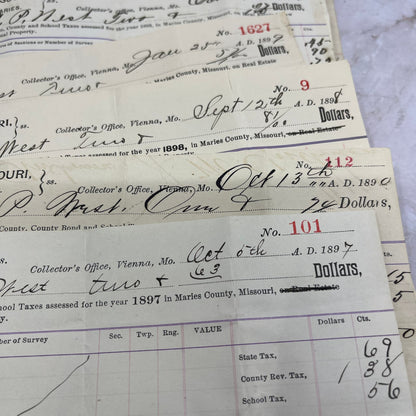 P. West Two &
County and School Taxes assessed for the year 189 in Maries County, Missouri, on Real
onal Property.
ion of Sections or Number of Survey
No. 1627
Collector's Office, Vienna, Mo. Jan 25 A. D. 1899
est Two & Dollars,
in Maries County, Missouri, on Real Estate
No. 9
RI, } ss.
Collector's Office, Vienna, Mo. Sept 12th A. D. 1898
West Two & 81/100 Dollars,
sessed for the year 1898, in Maries County, Missouri, on Real Estate
No. 112
OURI, } ss.
Collector's Office, Vienna, Mo. Oct 13th A. D. 1890
P. West. One & 74 Dollars,
County Road and School
No. 101
ss.
Collector's Office, Vienna, Mo. Oct 5th A. D. 1897
West Two & 63 Dollars,
School Taxes assessed for the year 1897 in Maries County, Missouri, on Real Estate
Number of Survey Sec. Twp. Rng. VALUE Dollars Cts.
State Tax, 69
County Rev. Tax, 1 38
School Tax, 56